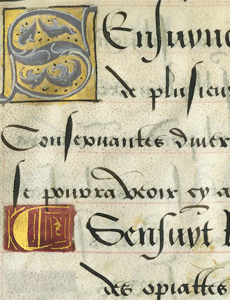 SEnsuyue
de plusieu
Conseruantes diuer
se pourra veoir cy a
Sensuyt
des opiattes